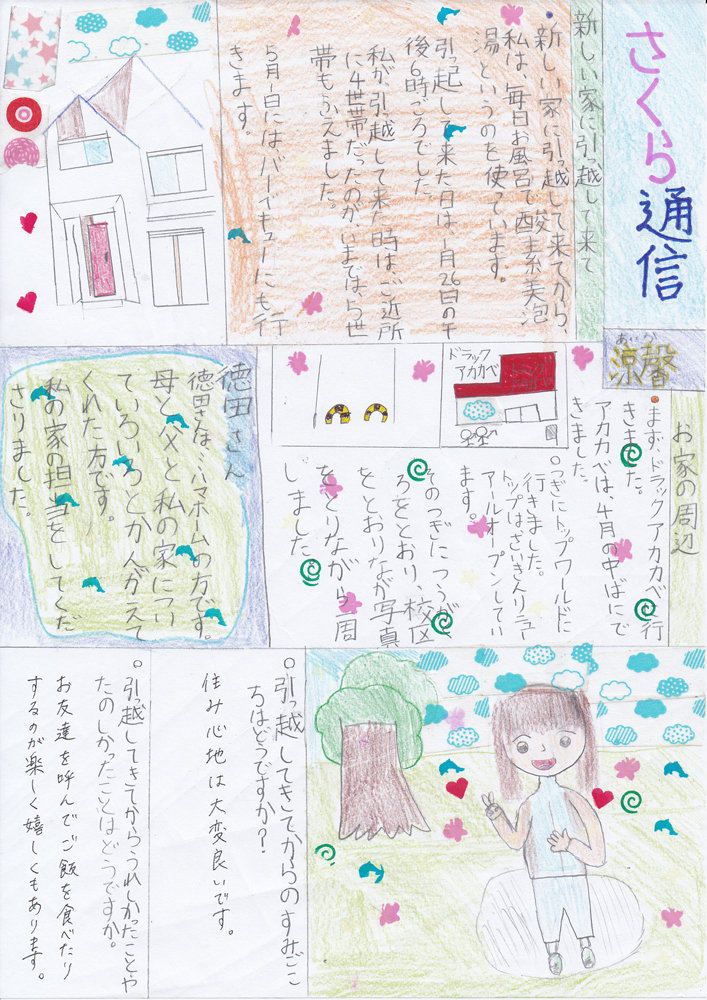 さくら通信
あいか
涼馨
新しい家に引っ越して来て
新しい家に引っ越して来てから、
私は、毎日お風呂で酸素美泡
湯というのを使っています。
引っ越して来た日は、1月26日の午
後6時ごろでした。
私が引っ越して来た時は、ご近所
に4世帯だったのが、いまでは、5世
帯もふえました。
5月1日にはバーベキューにも行
きます。
お家の周辺
まず、ドラックアカカベに行
きました。
アカカベは、4月の中ばにで
きました。
つぎにトップワールドに
行きました。
トップはさいきんリニュー
アルオープンしてい
ます。
そのつぎにつうがく
ろをとおり、校区
をとおりなが写真
をとりながら周
じました。
ドラック
アカカベ
徳田さん
徳田さんは、ハマホームの方です。
母と父と私の家につい
ていろいろとかんがえて
くれた方です。
私の家の担当をしてくだ
さりました。
引っ越してきてからのすみごこ
ちはどうですか?
住み心地は大変良いです。
引っ越してきてからうれしかったことや
たのしかったことはどうですか。
お友達を呼んでご飯を食べたり
するのが楽しく嬉しくもあります。